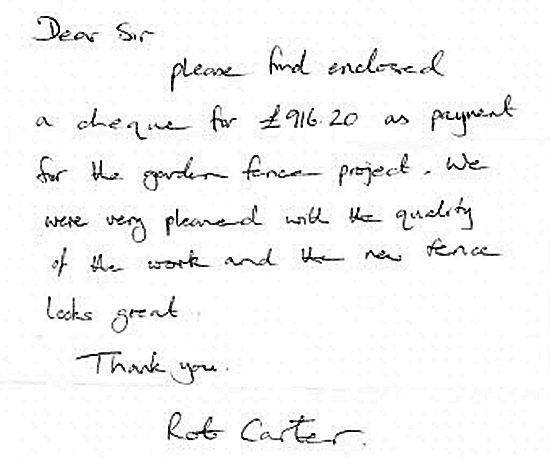 Dear Sir
please find enclosed
a cheque for £916.20 as payment
for the garden fence project. We
were very pleased with the quality
of the work and the new fence
looks great.
Thank you.
Rob Carter.